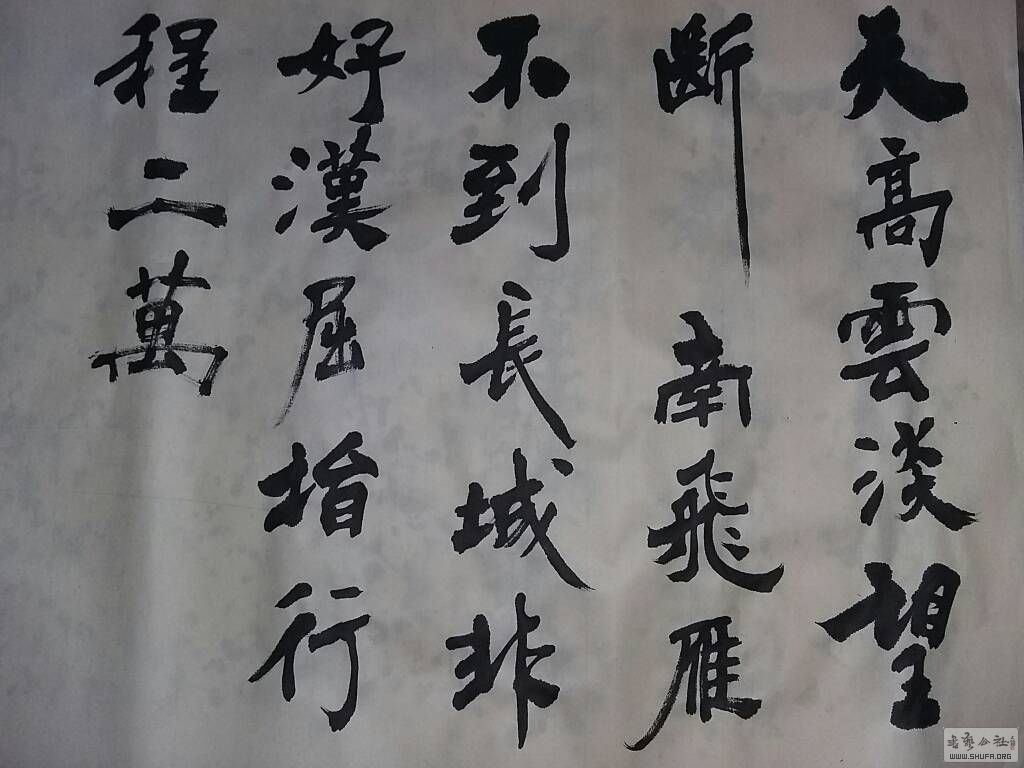 天高雲淡望
斷南飛雁
不到長城非
好漢屈指行
程二萬
WWW.SHUFA.ORG